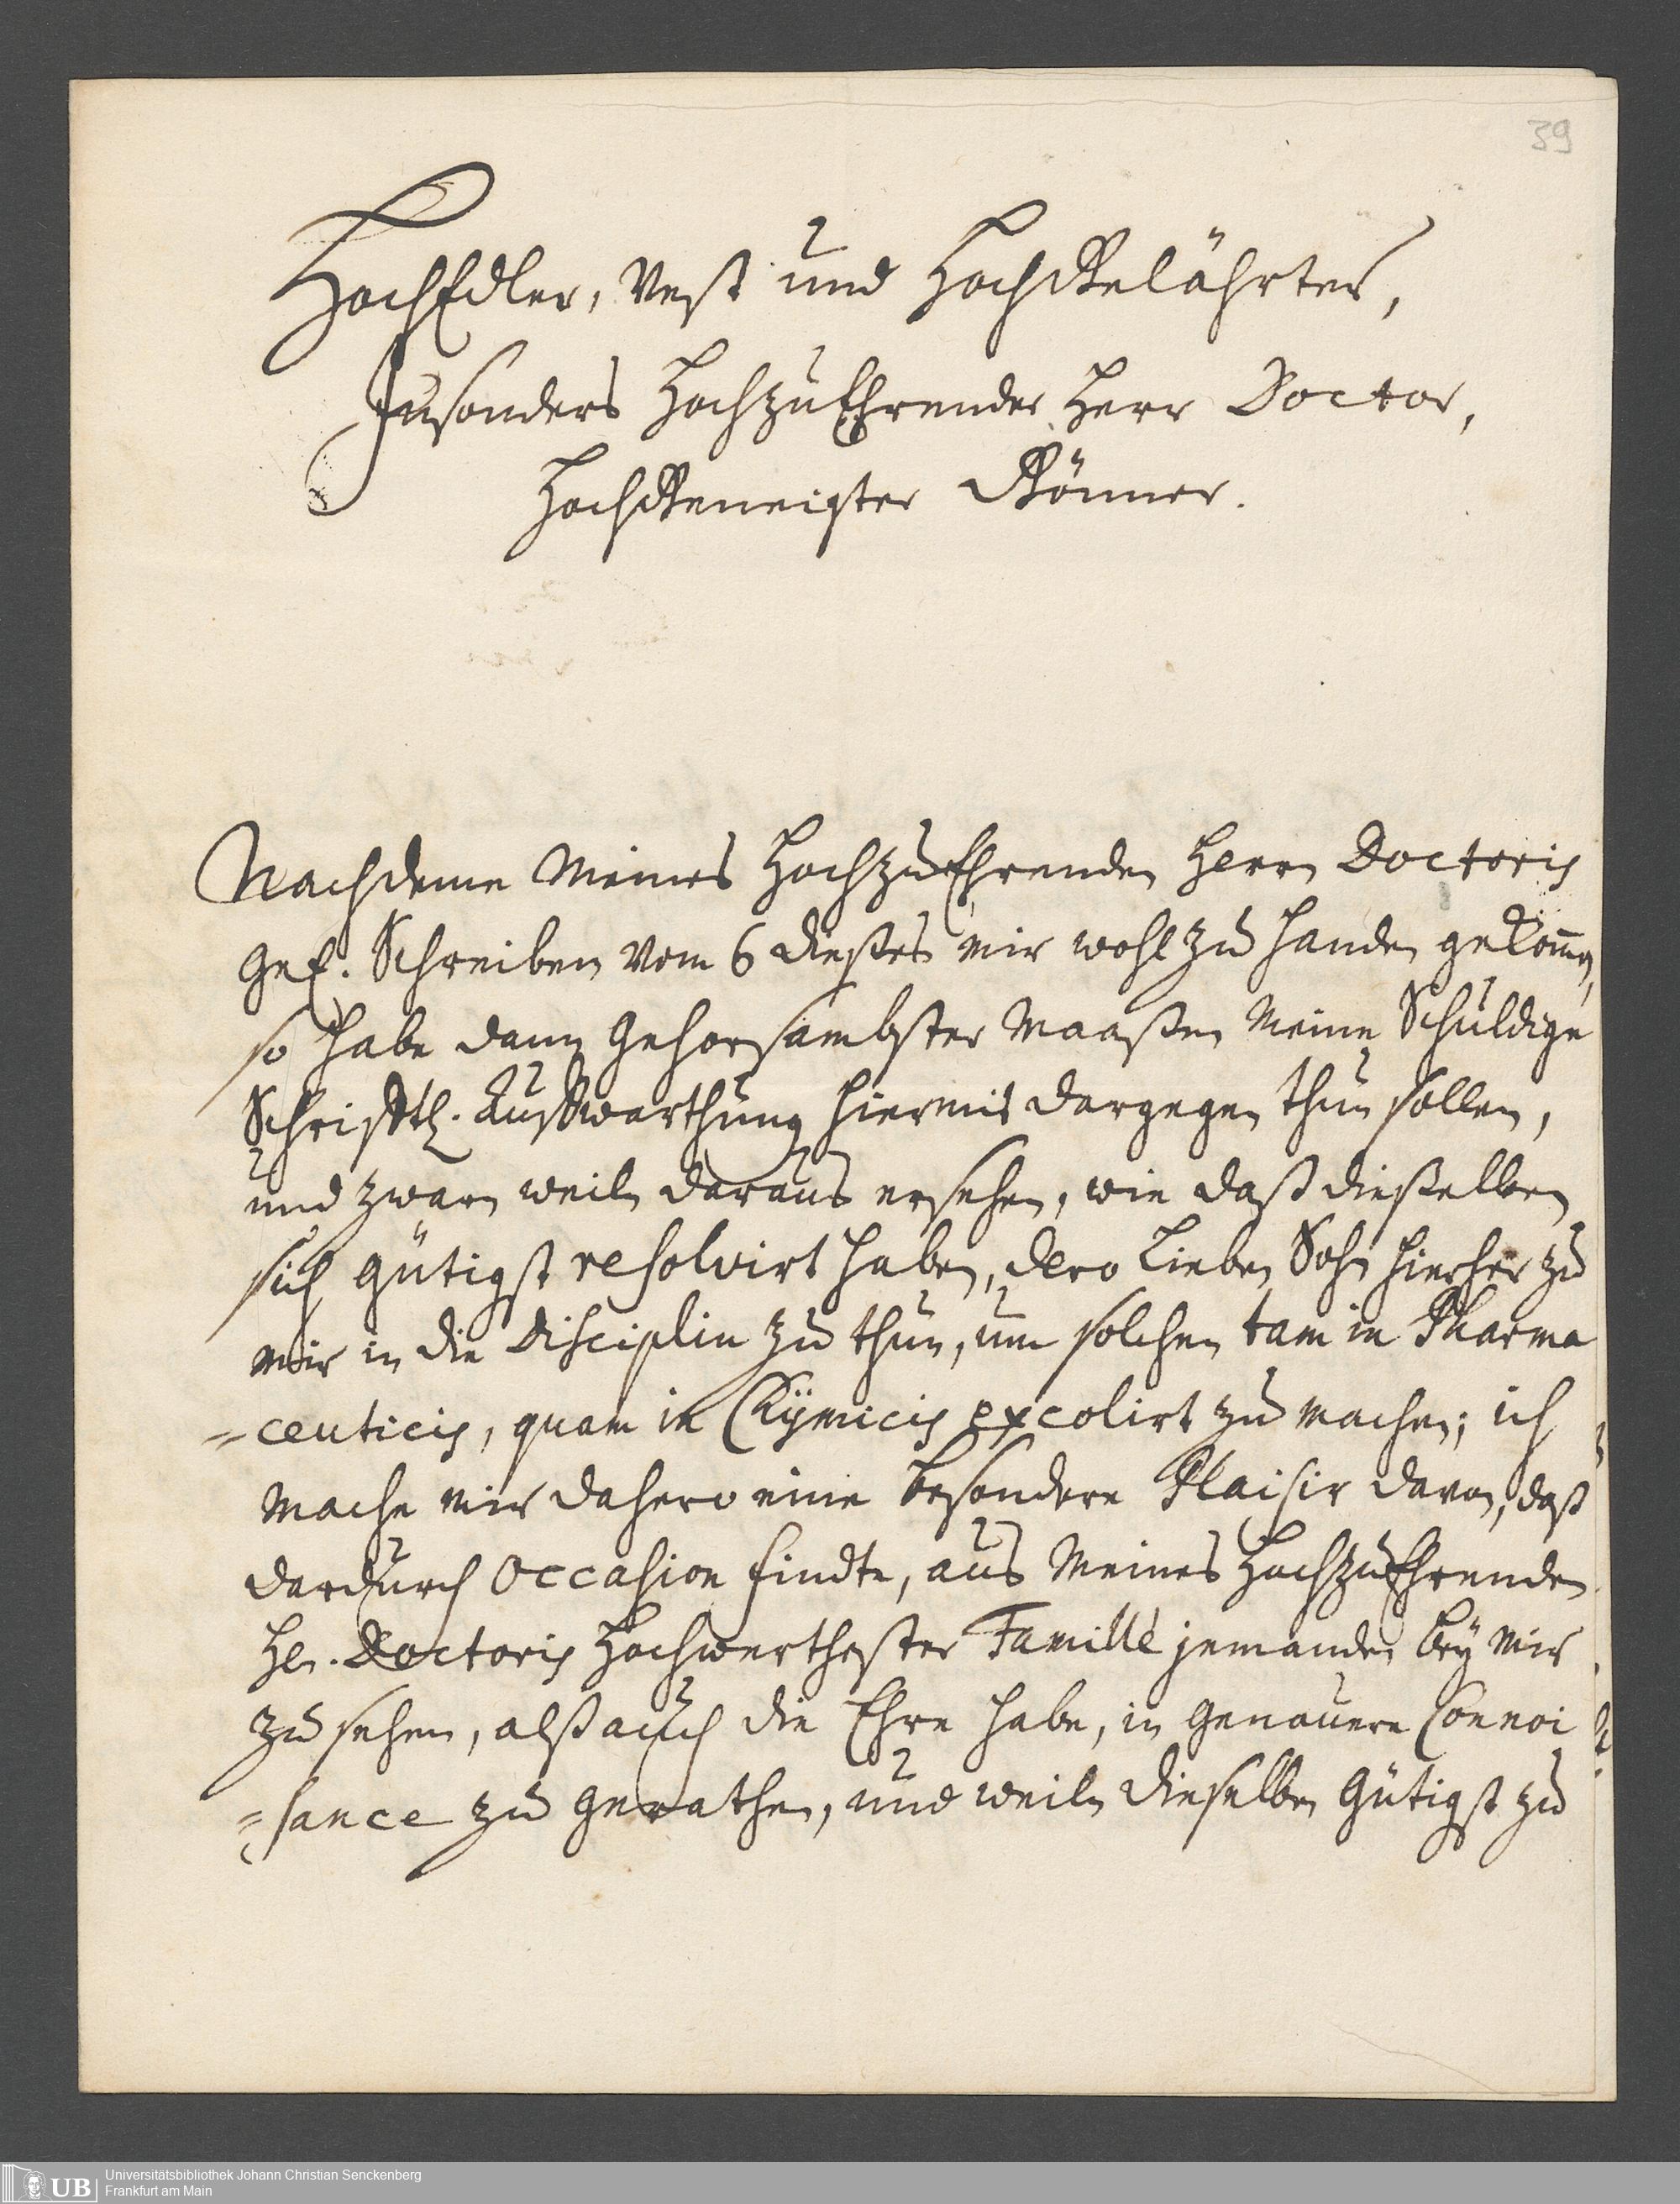 39
HochEdler, Vest und HochGelährter,
Insonders HochzuEhrender Herr Doctor,
HochGeneigter Gönner.
Nachdeme Meines HochzuEhrenden Herrn Doctoris
Gel. Schreiben vom 6 dießes mir wohl zu handen gekomen,
so habe dann Gehorsambster Maaßen Meine Schuldige
Schrifftl. Auffwarthung hiermit dargegen thun sollen,
und zwarn weiln daraus ersehen, wie daß dießelben
sich gütigst resolvirt haben, dero Lieben Sohn hierher zu
mir in die Disciplin zu thun, um solchen tam in Pharma
=ceuticis, quam in Chymicis excolirt zu machen; ich
mache mir dahero eine besondere Plaisir davon, daß
dardurch Occasion findte, aus Meines HochzuEhrenden
Hn. Doctoris Hochwerthester Famille jemanden bey mir
zu sehen, alß auch die Ehre habe, in genauere Connoi
=sance zu gerathen, und weiln dieselben Gütigst zu
UB
Universitätsbibliothek Johann Christian Senckenberg
Frankfurt am Main